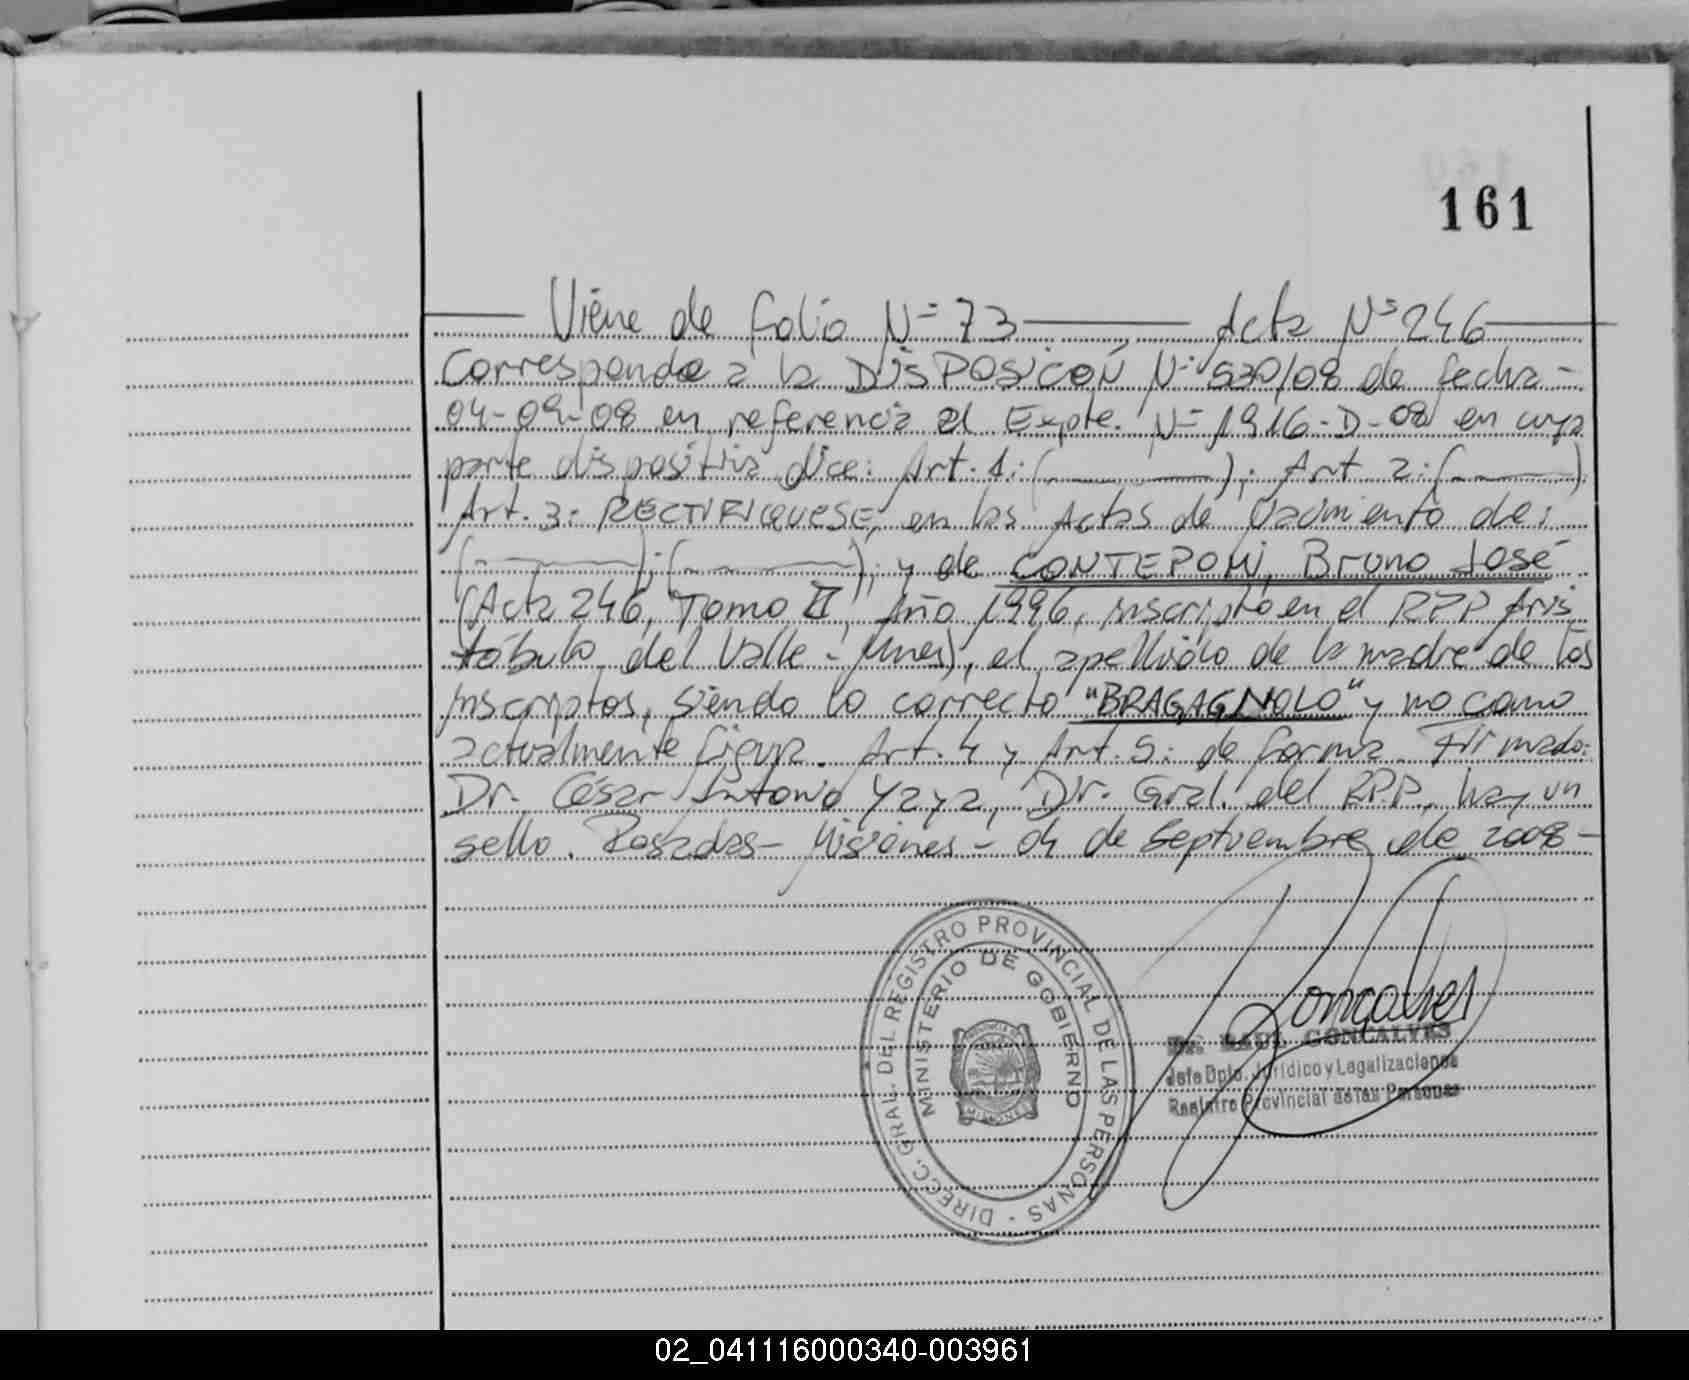 161
Viene de folio Nº 73 Acta Nº 246
Corresponde a la DISPOSICIÓN Nº 530/08 de fecha -
04-09-08 en referencia al Expte. Nº 1916-D-08 en cuya
parte dispositiva dice: Art. 1: (————); Art 2: (————)
Art. 3: RECTIFIQUESE, en las Actas de Nacimiento de:
(————); (————); y de CONTEPOMI, Bruno José
(Acta 246, Tomo II, Año 1996, inscripto en el RPP Aris
tóbulo del Valle - Mnes), el apellido de la madre de los
inscriptos, siendo lo correcto "BRAGAGNOLO" y no como
actualmente figura. Art. 4 y Art. 5: de forma. Firmado:
Dr. César Antonio Yaya, Dir. Gral. del RPP, hay un
sello. Posadas - Misiones - 04 de Septiembre de 2008 -
DIRECC. GRAL. DEL REGISTRO PROVINCIAL DE LAS PERSONAS -
MINISTERIO DE GOBIERNO
PROVINCIA DE
MISIONES
Gonçalves
Dr. RAUL GONCALVES
Jefe Dpto. Jurídico y Legalizaciones
Registro Provincial de las Personas
02_041116000340-003961